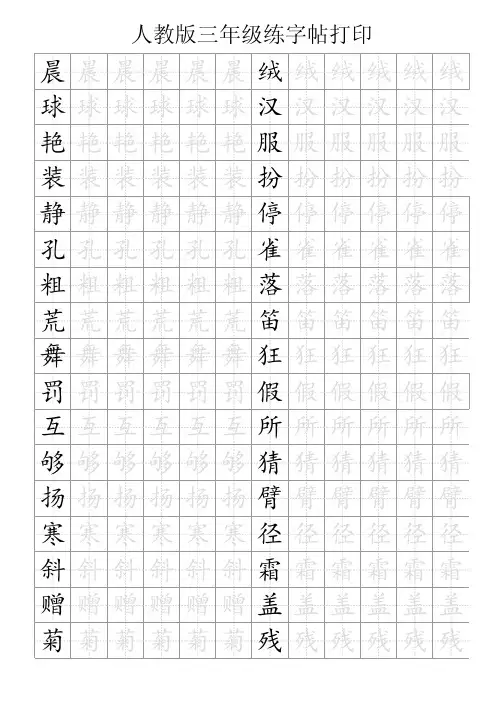 人教版三年级练字帖打印
晨晨晨晨晨晨绒绒绒绒绒绒
球球球球球球汉汉汉汉汉汉
艳艳艳艳艳艳服服服服服服
装装装装装装扮扮扮扮扮扮
静静静静静静停停停停停停
孔孔孔孔孔孔雀雀雀雀雀雀
粗粗粗粗粗粗落落落落落落
荒荒荒荒荒荒笛笛笛笛笛笛
舞舞舞舞舞舞狂狂狂狂狂狂
罚罚罚罚罚罚假假假假假假
互互互互互互所所所所所所
够够够够够够猜猜猜猜猜猜
扬扬扬扬扬扬臂臂臂臂臂臂
寒寒寒寒寒寒径径径径径径
斜斜斜斜斜斜霜霜霜霜霜霜
赠赠赠赠赠赠盖盖盖盖盖盖
菊菊菊菊菊菊残残残残残残